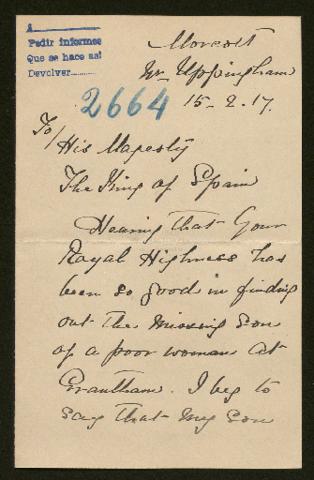 A
Pedir informes
Que se hace así
Devolver
2664
Morcott
Nr. Uppingham
15-2.17.
To/
His Majesty
The King of Spain
Hearing that Your
Royal Highness has
been so good in finding
out the missing son
of a poor woman at
Grantham. I beg to
say that my son